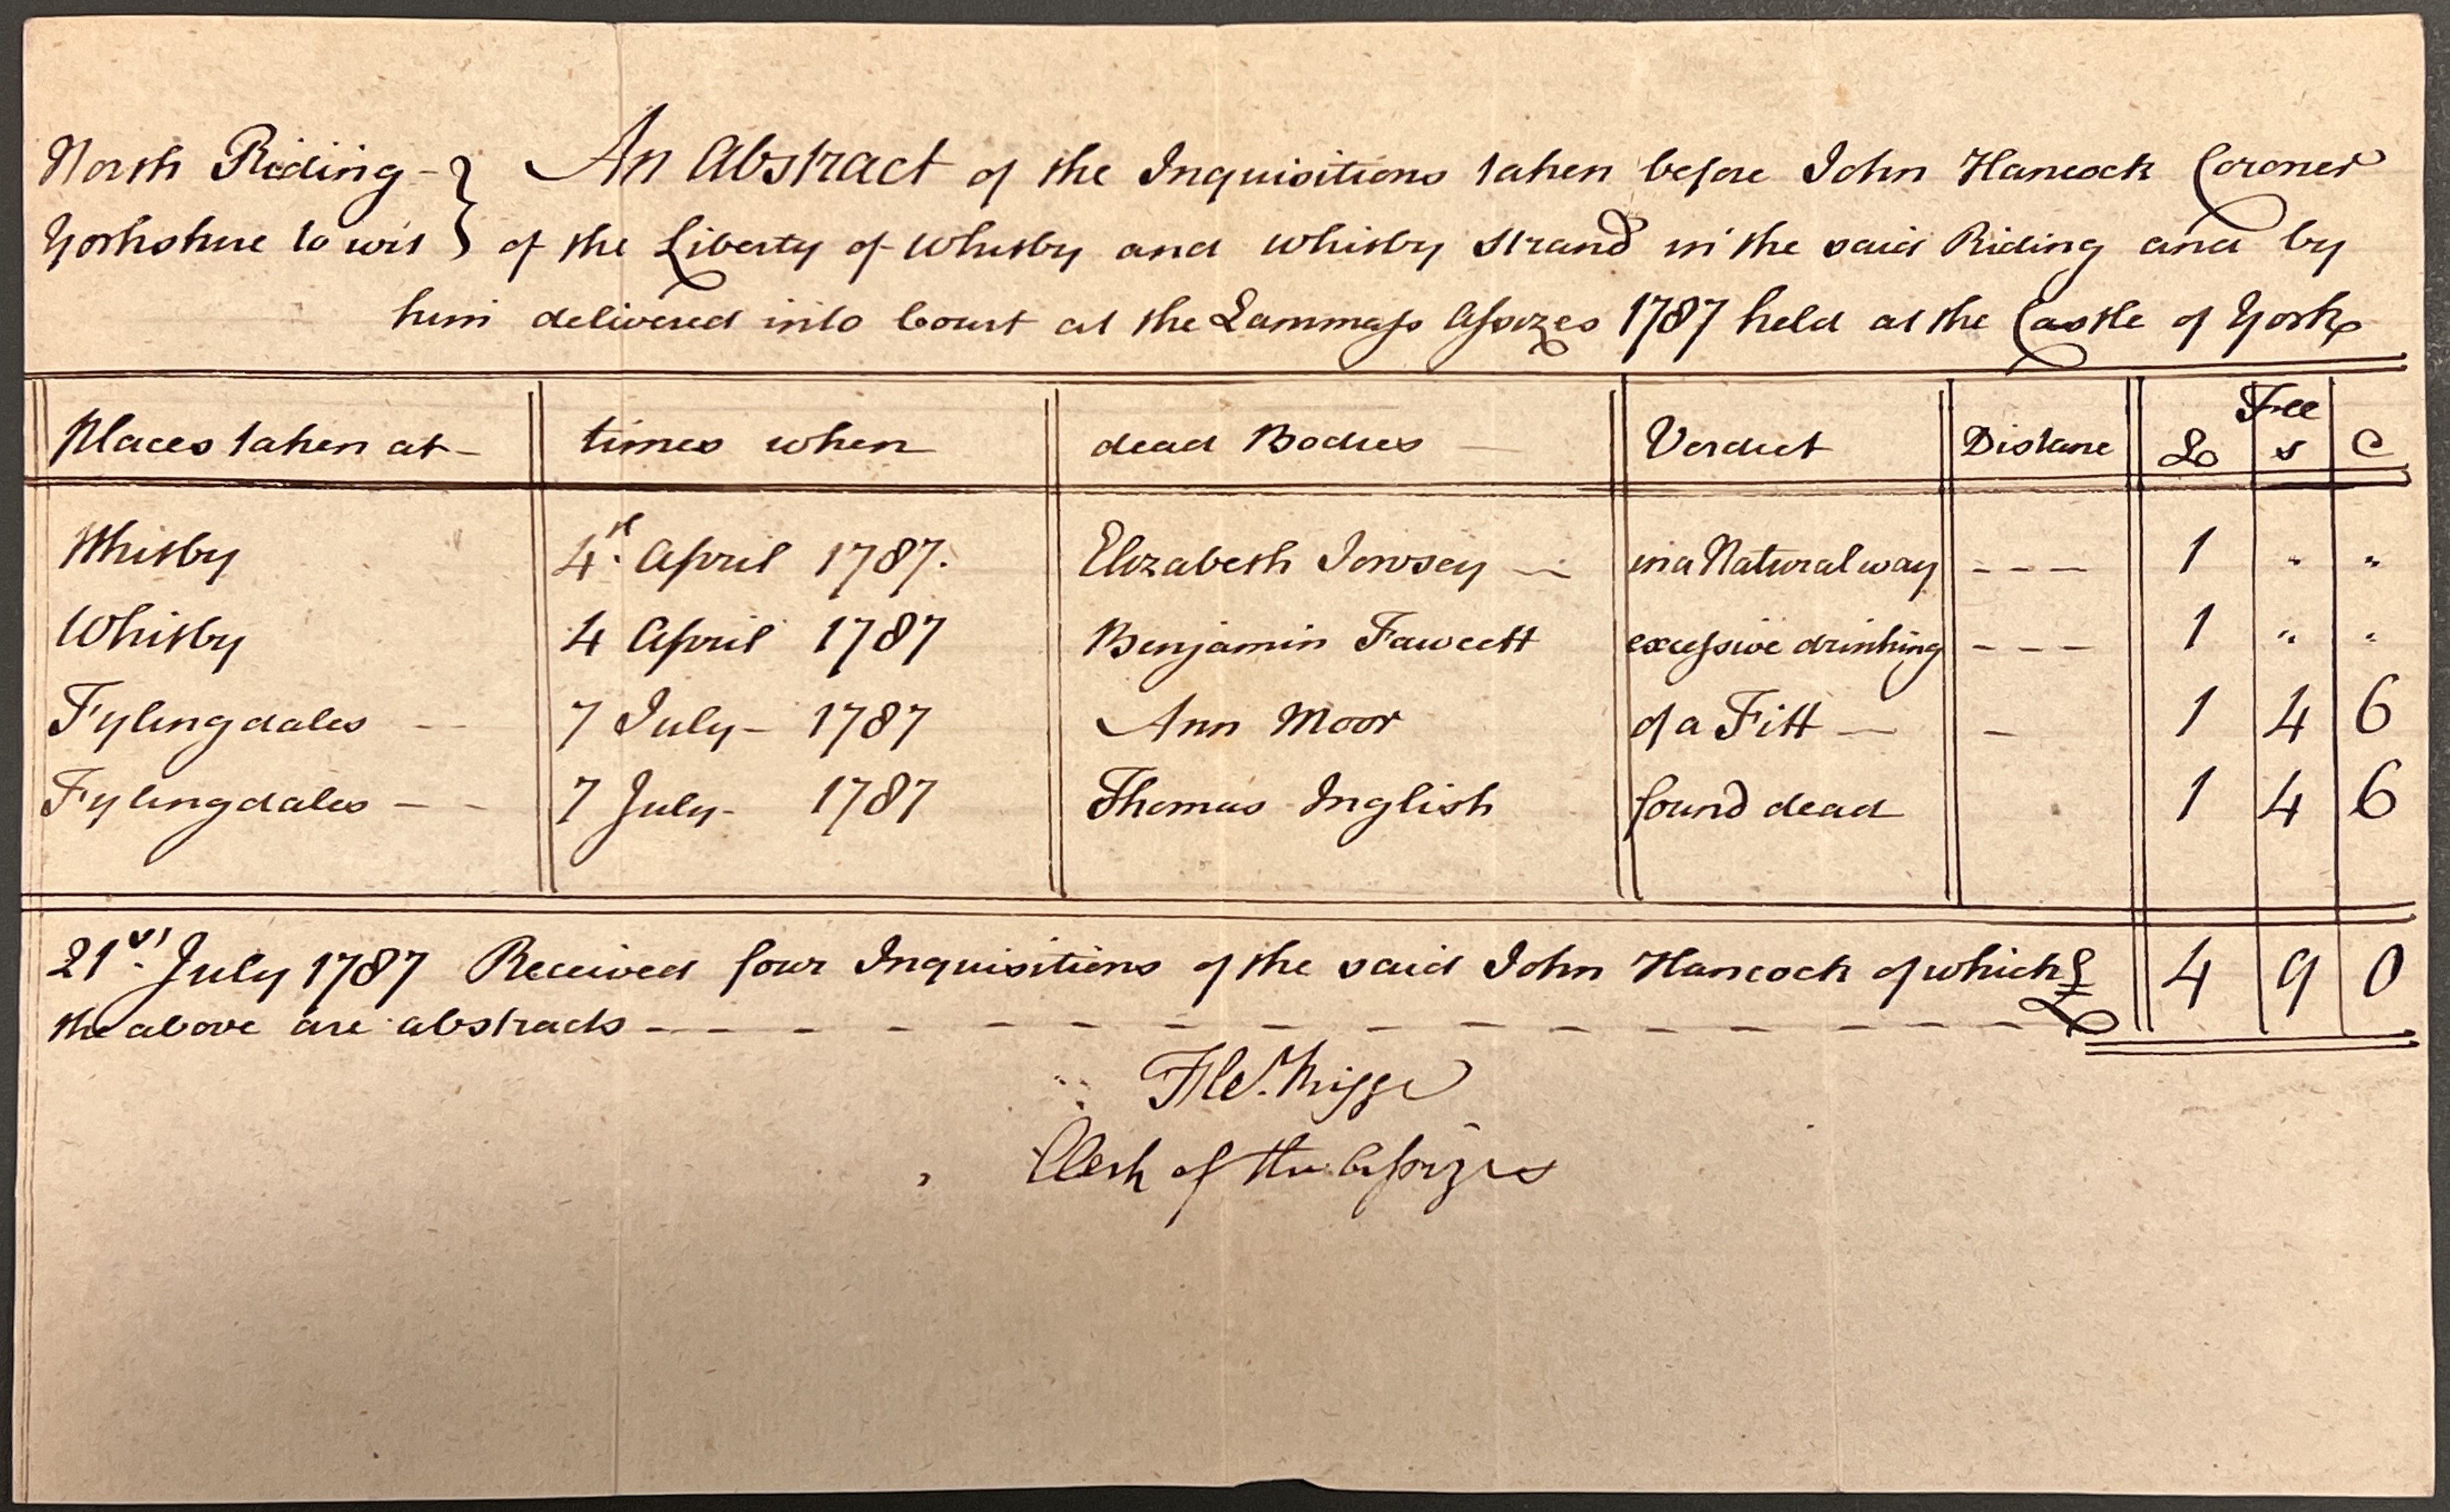 North Riding - } An Abstract of the Inquisitions taken before John Hancock Coroner
Yorkshire to wit } of the Liberty of Whitby and Whitby Strand in the said Riding and by
him delivered into Court at the Lammass Assizes 1787 held at the Castle of York
Places taken at - times when dead Bodies - Verdict Distane Fee £ s d
Whitby 4th April 1787. Elizabeth Jowsey - in a Natural way - - - 1 " "
Whitby 4 April 1787 Benjamin Fawcett excessive drinking - - - 1 " "
Fylingdales - 7 July - 1787 Ann Moor of a Fitt - - 1 4 6
Fylingdales - - 7 July - 1787 Thomas Inglish found dead 1 4 6
21st July 1787 Received four Inquisitions of the said John Hancock of which £ 4 9 0
the above are abstracts - - - - - - - - - - - - - - -
Clerk of the Assizes